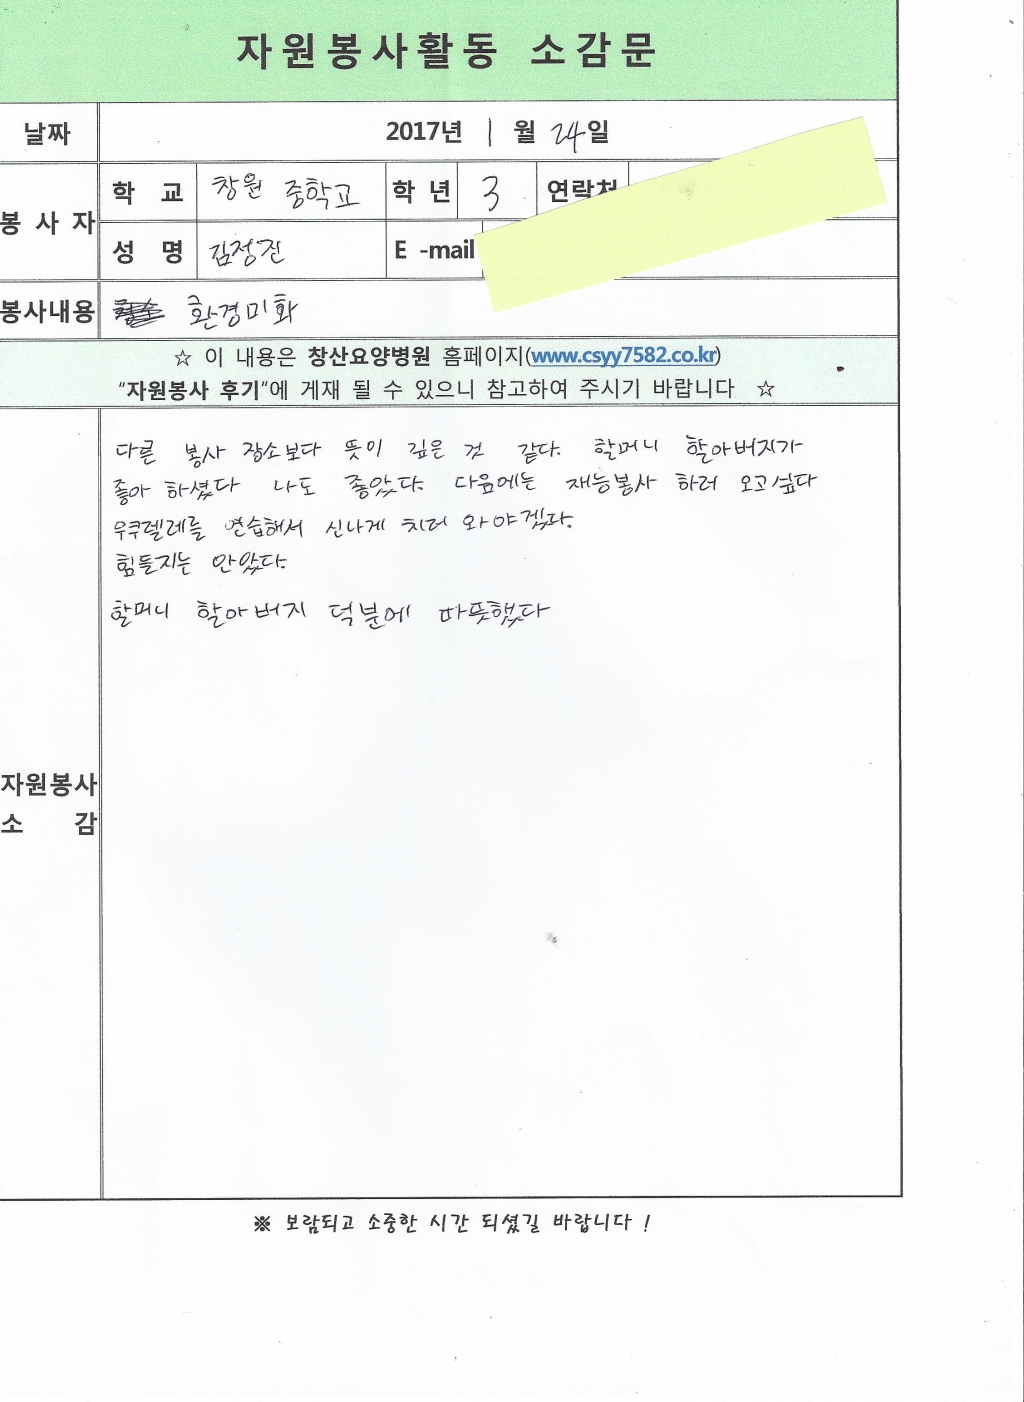 자원봉사활동 소감문
날짜 2017년 1 월 24일
봉 사 자
학 교 창원 중학교 학 년 3 연락처
성 명 김정진 E -mail
봉사내용 환경미화
☆ 이 내용은 창산요양병원 홈페이지(www.csyy7582.co.kr)
"자원봉사 후기"에 게재 될 수 있으니 참고하여 주시기 바랍니다 ☆
다른 봉사 장소보다 뜻이 깊은 것 같다. 할머니 할아버지가
좋아 하셨다 나도 좋았다. 다음에는 재능봉사 하러 오고싶다
우쿠렐레를 연습해서 신나게 치러 와야겠다.
힘들지는 안았다.
할머니 할아버지 덕분에 따뜻했다
자원봉사
소 감
※ 보람되고 소중한 시간 되셨길 바랍니다 !